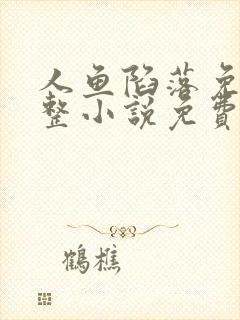 人鱼陷落免
整小說免費
鹤樵